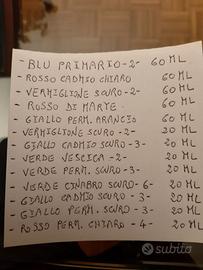 - BLU PRIMARIO-2- 60 ML
- ROSSO CADMIO CHIARO 60 ML
- VERMIGLIONE SCURO-2- 60 ML
- ROSSO DI MARTE - 60 ML
- GIALLO PERM. ARANCIO 60 ML
- VERMIGLIONE SCURO-2- 20 ML
- GIALLO CADMIO SCURO-3- 20 ML
- VERDE VESCICA-2- 20 ML
- VERDE PERM. SCURO-3- 20 ML
- VERDE CINABRO SCURO-6- 20 ML
- GIALLO CADMIO SCURO-3- 20 ML
- GIALLO PERM. SCURO-3- 20 ML
- ROSSO PERM. CHIARO-4- 20 ML
subito